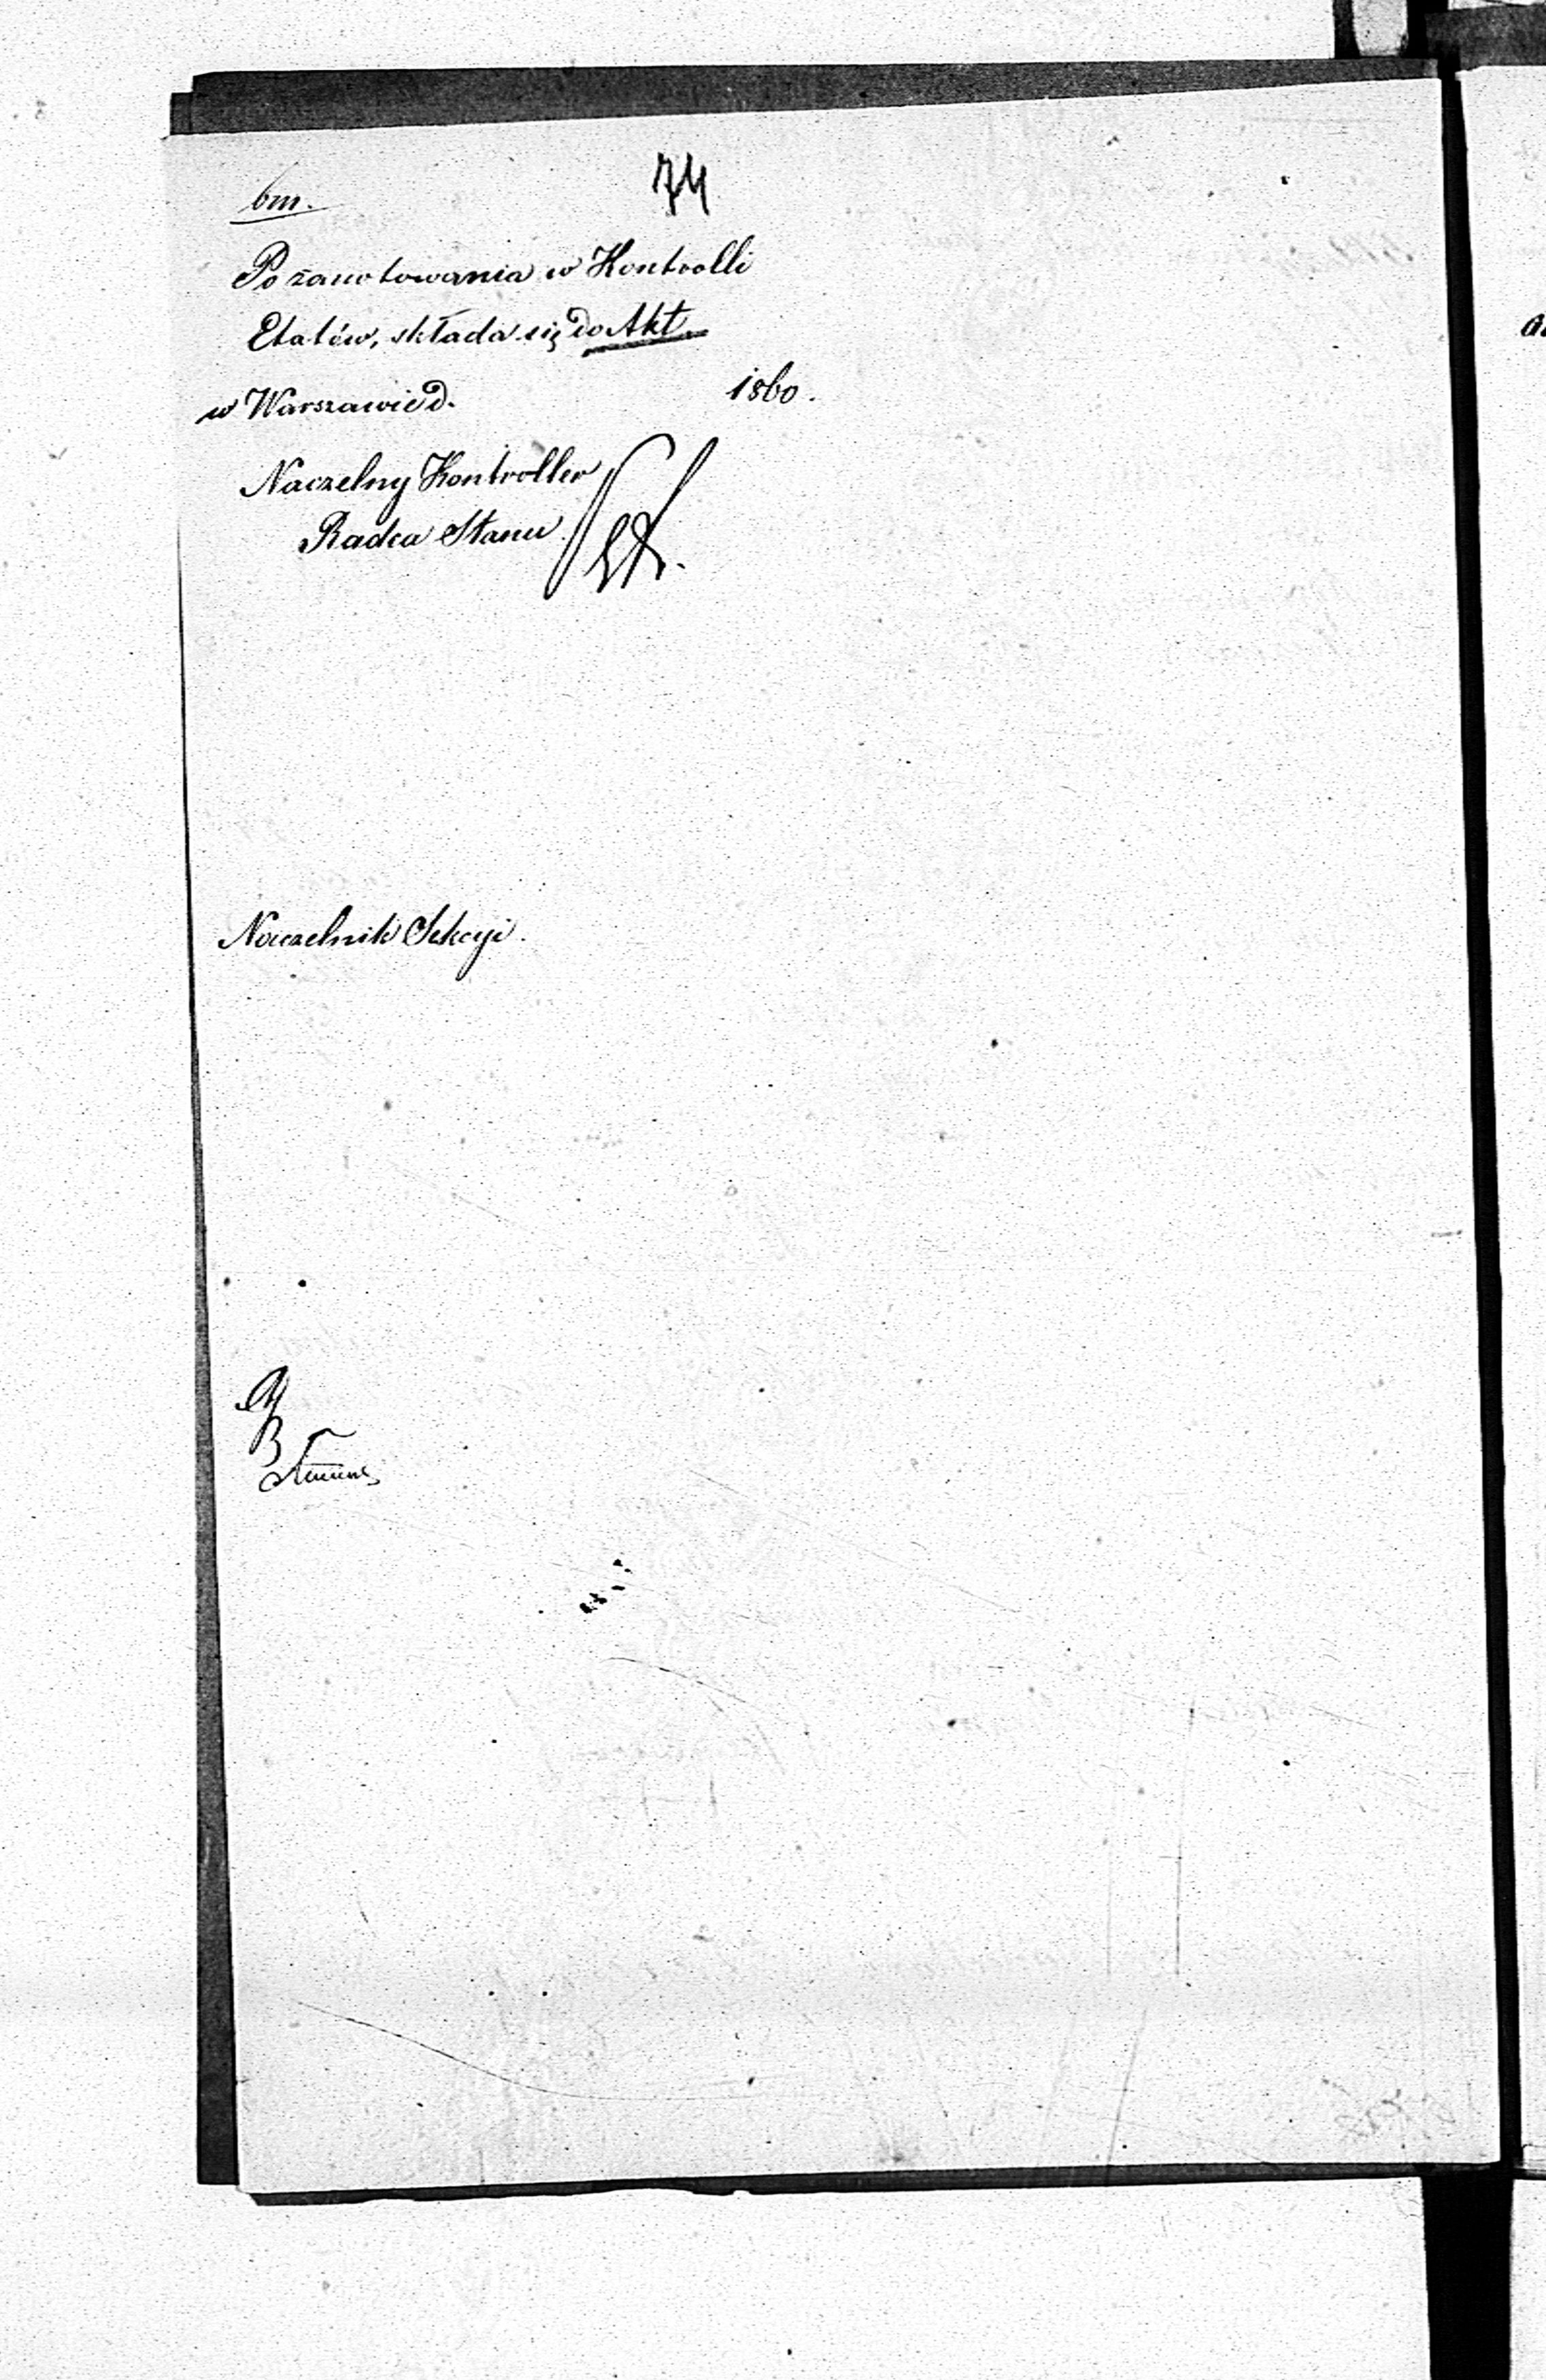 bm.
74
Po zanotowania w Kontrolli
Etatów, składa się do Akt
w Warszawie d. 1860.
Naczelny Kontroller
Radca Stanu
Naczelnik Sekcyi.